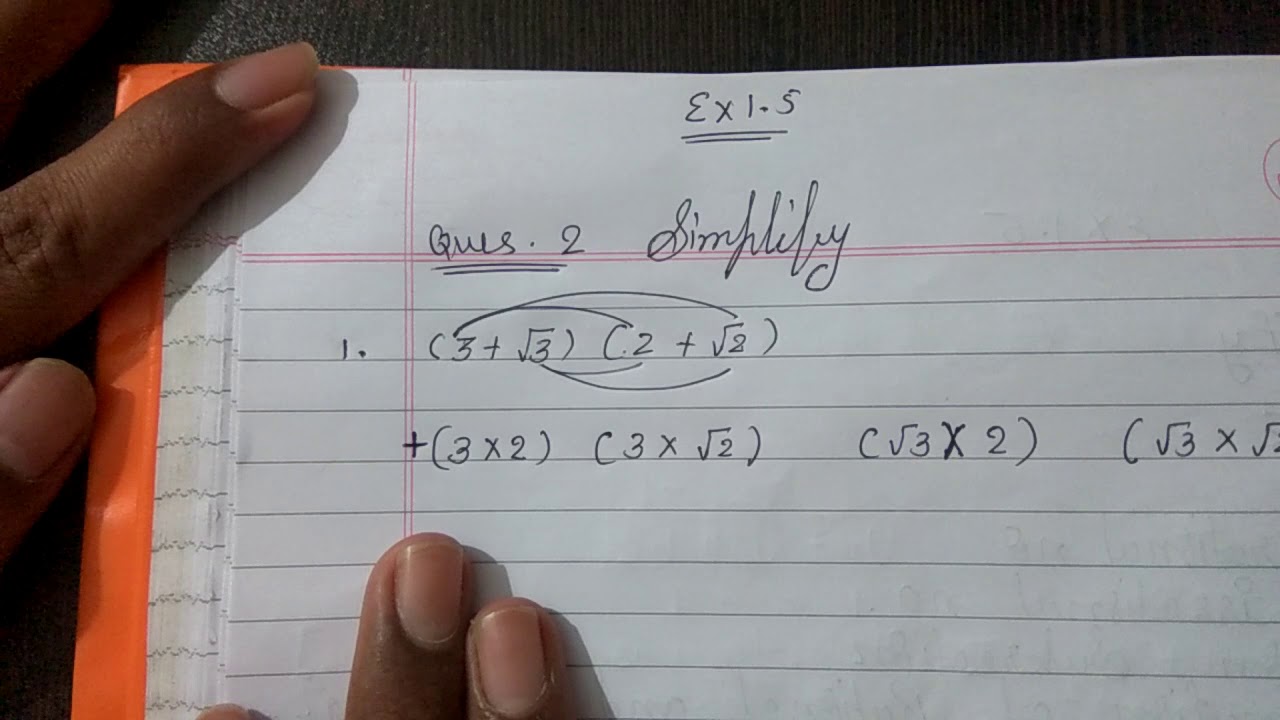 Ex 1.5
Ques. 2 Simplify
1. (3 + √3) (2 + √2)
+(3 × 2) (3 × √2) (√3 × 2) (√3 × √2